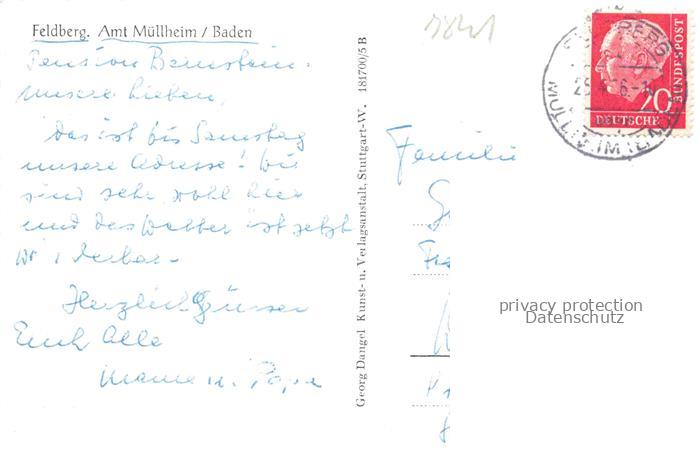 5841
Feldberg. Amt Müllheim / Baden
Pension Bernstein.
Unsere Lieben,
Das ist bis Samstag
unsere Adresse! Wir
sind sehr wohl hier
und das Wetter ist jetzt
wunderbar –
Herzlich Grüssen
Euch Alle
Mama u. Papa
Georg Dangel Kunst- u. Verlagsanstalt, Stuttgart-W. 181700/5 B
Familie
DEUTSCHE
BUNDESPOST
20
privacy protection
Datenschutz